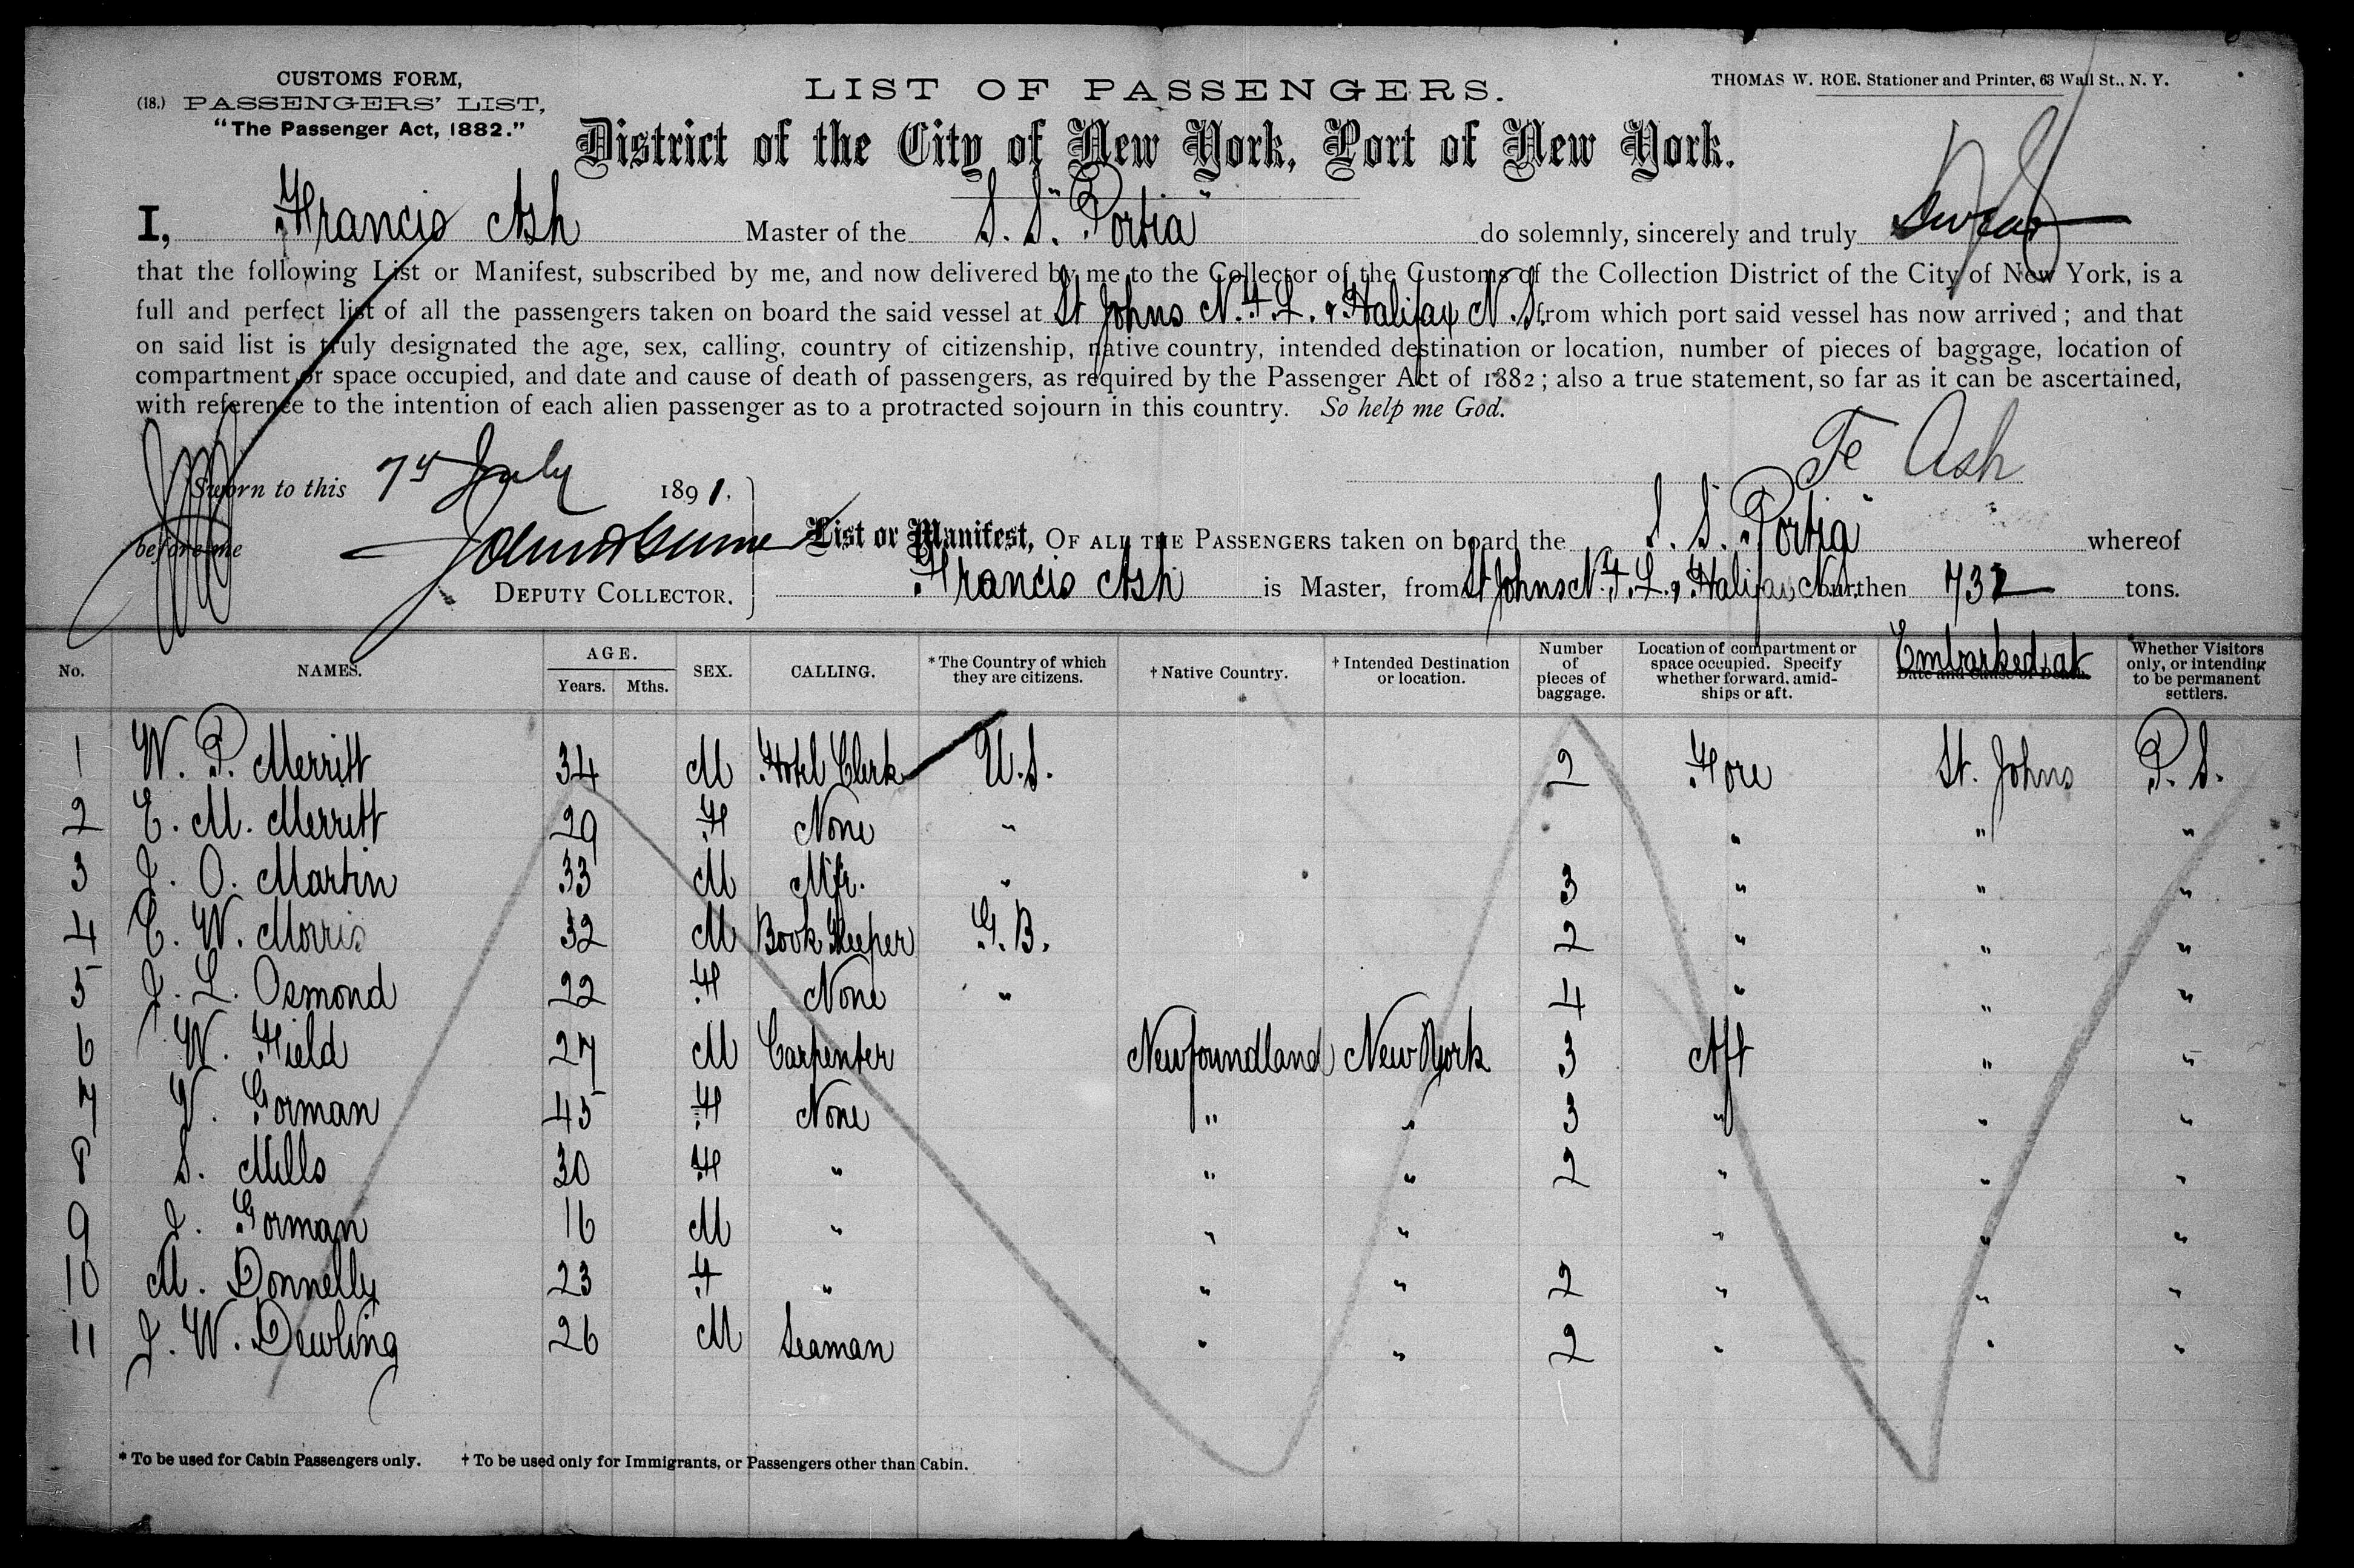 CUSTOMS FORM,
(18.) PASSENGERS' LIST,
"The Passenger Act, 1882."
LIST OF PASSENGERS.
THOMAS W. ROE, Stationer and Printer, 63 Wall St., N. Y.
District of the City of New York, Port of New York.
I, Francis Ash Master of the S. S. "Portia" do solemnly, sincerely and truly swear
that the following List or Manifest, subscribed by me, and now delivered by me to the Collector of the Customs of the Collection District of the City of New York, is a
full and perfect list of all the passengers taken on board the said vessel at St Johns N. F. L. & Halifax N. S. from which port said vessel has now arrived; and that
on said list is truly designated the age, sex, calling, country of citizenship, native country, intended destination or location, number of pieces of baggage, location of
compartment or space occupied, and date and cause of death of passengers, as required by the Passenger Act of 1882; also a true statement, so far as it can be ascertained,
with reference to the intention of each alien passenger as to a protracted sojourn in this country. So help me God.
Ash
Sworn to this 7 July 1891.
before me
DEPUTY COLLECTOR.
List or Manifest, OF ALL THE PASSENGERS taken on board the S. S. "Portia" whereof
Francis Ash is Master, from St Johns N. F. L. & Halifax burthen 732 tons.
No. NAMES. AGE. Years. Mths. SEX. CALLING. *The Country of which they are citizens. †Native Country. †Intended Destination or location. Number of pieces of baggage. Location of compartment or space occupied. Specify whether forward, amidships or aft. Embarked at Date and Cause of Death. Whether Visitors only, or intending to be permanent settlers.
1 W. P. Merritt 34 M Hotel Clerk U.S. 2 Fore St. Johns P. S.
2 E. M. Merritt 29 F None " " " "
3 J. O. Martin 33 M Mfr. " 3 " " "
4 C. W. Morris 32 M Book Keeper G. B. 2 " " "
5 J. L. Osmond 22 F None " 4 " " "
6 W. Field 27 M Carpenter Newfoundland New York 3 Aft " "
7 V. Gorman 45 F None " " 3 " " "
8 S. Mills 30 F " " " 2 " " "
9 J. Gorman 16 M " " " " " "
10 M. Donnelly 23 F " " " 2 " " "
11 J. W. Dewling 26 M Seaman " " 2 " " "
* To be used for Cabin Passengers only. † To be used only for Immigrants, or Passengers other than Cabin.